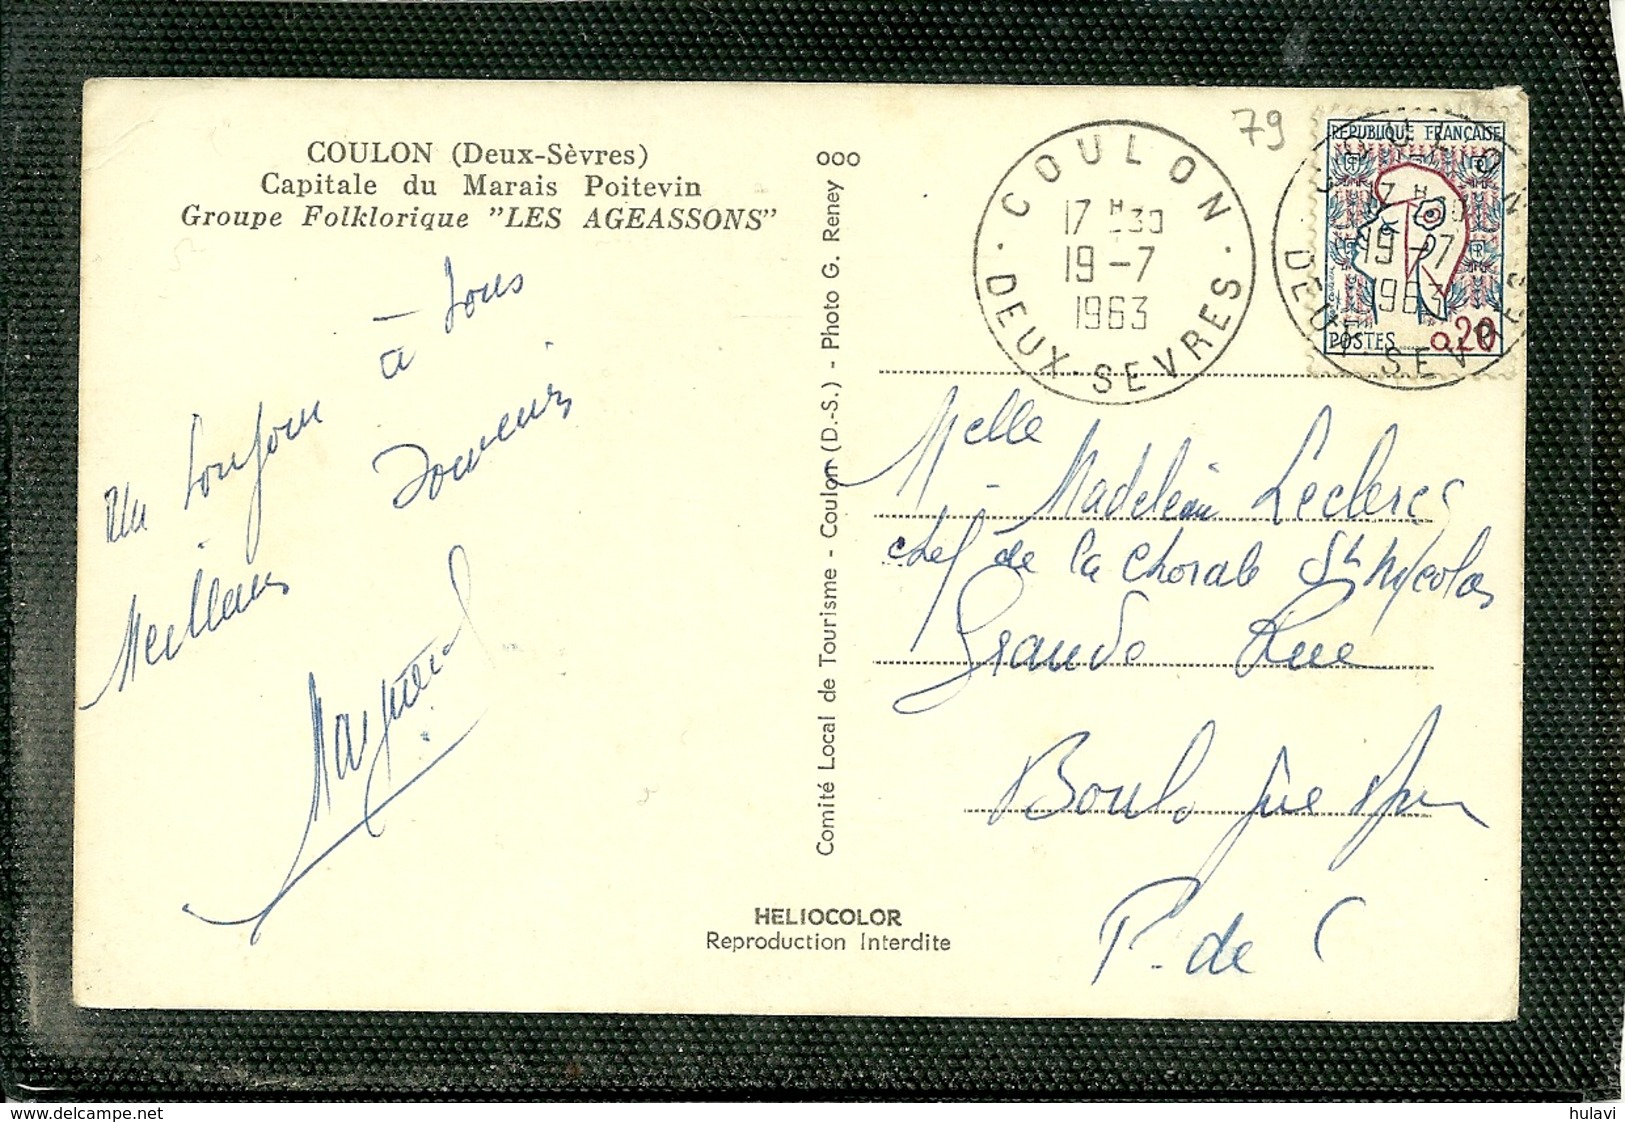 COULON (Deux-Sèvres)
Capitale du Marais Poitevin
Groupe Folklorique "LES AGEASSONS"
Un bonjour à tous
Meilleurs Souvenirs
HELIOCOLOR
Reproduction Interdite
Comité Local de Tourisme - Coulon (D.-S.) - Photo G. Reney
000
79
COULON
17 H 30
19-7
1963
DEUX-SEVRES
REPUBLIQUE FRANÇAISE
POSTES
0,20
COULON
19-07
1963
DEUX-SEVRES
Melle Madeleine Leclercq
chef de la chorale St Nicolas
Grande Rue
Boulogne s/Mer
P. de C
hulavi
www.delcampe.net